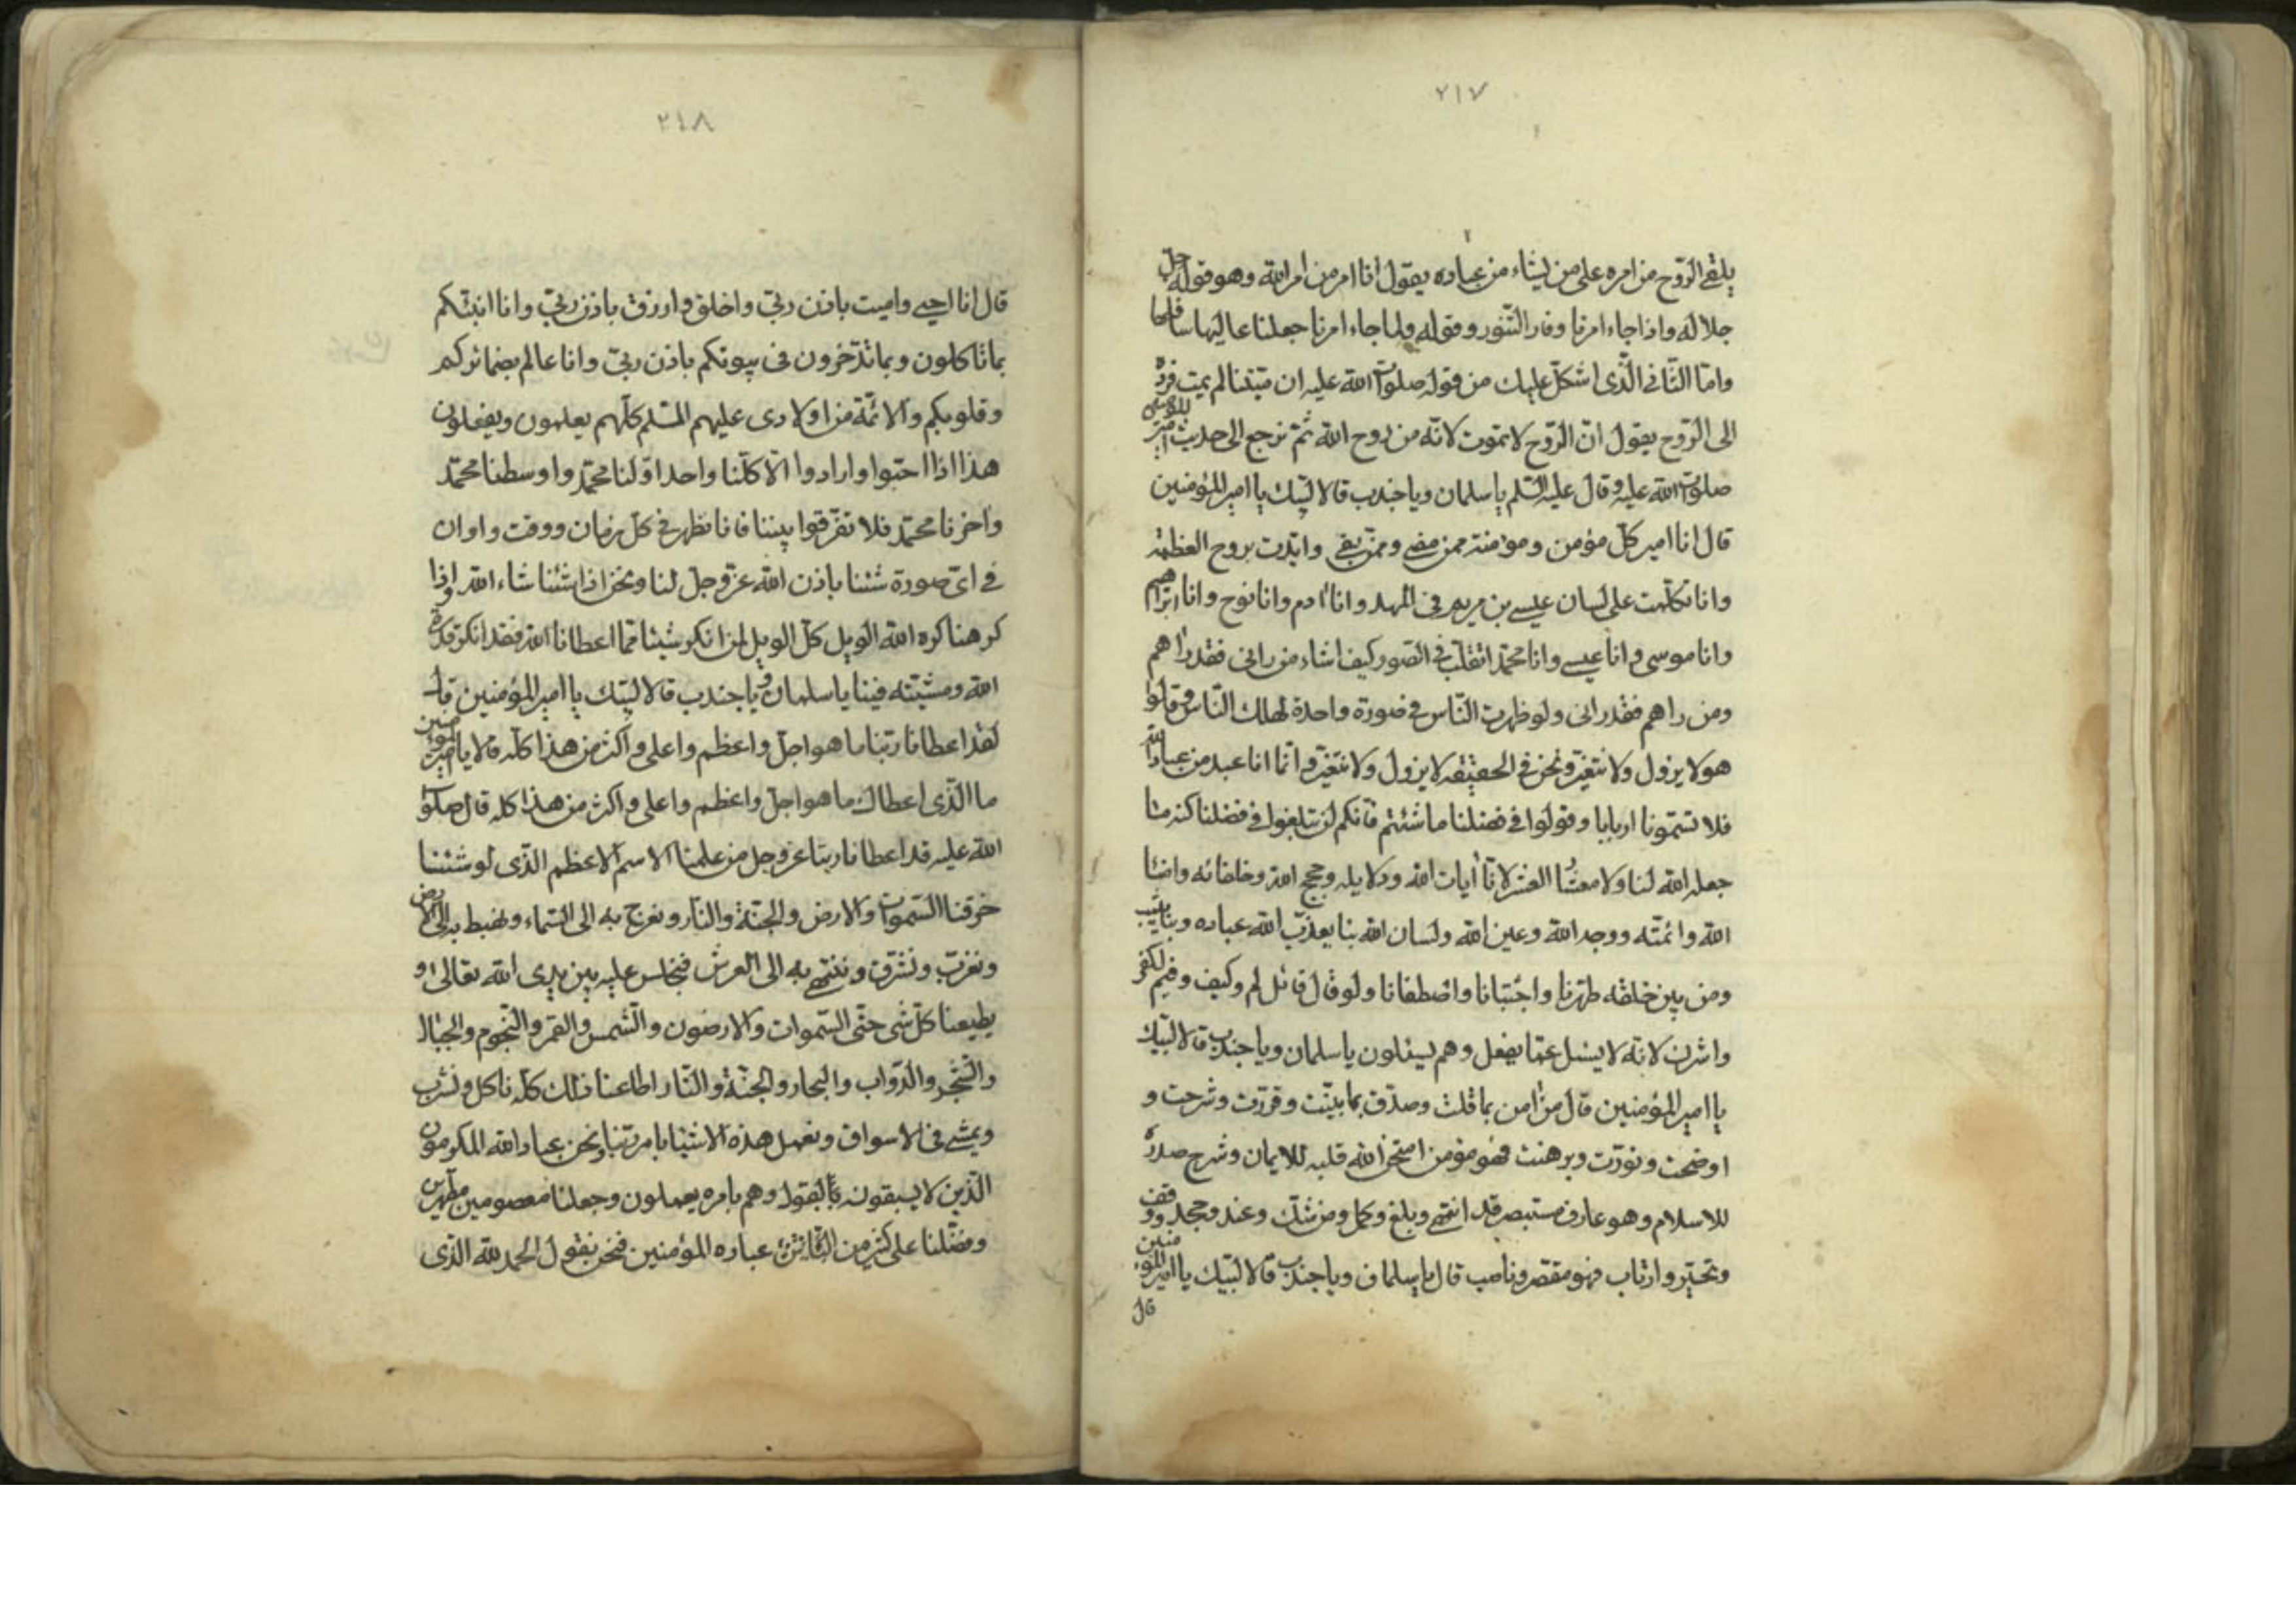 ٢١٧
يلقى الروح من امره على من يشاء من عباده يقول انا امر من امر الله وهو قوله جل
جلاله واذا جاء امرنا وفار التنور وقوله ولما جاء امرنا جعلنا عاليها سافلها
واما الثانى الذى اشكل عليك من قوله صلوات الله عليه ان ميتنا لم يمت فرده
الى الروح يقول ان الروح لا تموت لانه من روح الله ثم نرجع الى حديث امير المؤمنين
صلوات الله عليه وقال عليه السلم يا سلمان ويا جندب قالا لبيك يا امير المؤمنين
قال انا امير كل مؤمن ومؤمنة ممن مضى وممن بقى وايدت بروح العظمة
وانا تكلمت على لسان عيسى بن مريم فى المهد وانا ادم وانا نوح وانا ابراهيم
وانا موسى وانا عيسى وانا محمد اتقلب فى الصور كيف اشاء من رانى فقد راهم
ومن راهم فقد رانى ولو ظهرت الناس فى صورة واحدة لهلك الناس وقالوا
هو لا يزول ولا يتغير ونحن فى الحقيقه لا يزول ولا نتغير وانما انا عبد من عباد الله
فلا تسمونا اربابا وقولوا فى فضلنا ما شئتم فانكم لن تبلغوا فى فضلنا كنه ما
جعله الله لنا ولا معشار العشر لانا ايات الله ودلايله وحجج الله وخلفائه وامنا
الله وائمته ووجه الله وعين الله ولسان الله بنا يعذب الله عباده وبنا يثيب
ومن بين خلقه طهرنا واجتبانا واصطفانا ولو قال قائل لم وكيف وفيم لكفر
واشرك لانه لا يسئل عما يفعل وهم يسئلون يا سلمان ويا جندب قالا لبيك
يا امير المؤمنين قال من امن بما قلت وصدق بما بينت وقررت وشرحت و
اوضحت ونورت وبرهنت فهو مؤمن امتحن الله قلبه للايمان وشرح صدره
للاسلام وهو عارف مستبصر قد انتهى وبلغ وكمل ومن شك وعند وجحد ووقف
وتحير وارتاب فهو مقصر وناصب قال يا سلمان ويا جندب قالا لبيك يا امير المؤمنين
قال
٢١٨
قال انا احيى واميت باذن ربى واخلق وارزق باذن ربى وانا انبئكم
بما تاكلون وبما تدخرون فى بيوتكم باذن ربى وانا عالم بضمائركم
وقلوبكم والائمة من اولادى عليهم السلم كلهم يعلمون ويفعلون
هذا اذا احبوا وارادوا الا كلنا واحد اولنا محمد واوسطنا محمد
واخرنا محمد فلا تفرقوا بيننا فانا نظهر فى كل زمان ووقت واوان
فى اى صورة شئنا باذن الله عز وجل لنا ونحن اذا شئنا شاء الله واذا
كرهنا كره الله الويل كل الويل لمن انكر شيئا مما اعطانا الله فقد انكر قدرة
الله ومشيته فينا يا سلمان ويا جندب قالا لبيك يا امير المؤمنين قال
لقد اعطانا ربنا ما هو اجل واعظم واعلى واكثر من هذا كله قالا يا امير المؤمنين
ما الذى اعطاك ما هو اجل واعظم واعلى واكثر من هذا كله قال صلوات
الله عليه قد اعطانا ربنا عز وجل من علمنا الاسم الاعظم الذى لو شئنا
خرقنا السموات والارض والجنة والنار ونعرج به الى السماء ونهبط به الى الارض
ونغرب ونشرق وننتهى به الى العرش فنجلس عليه بين يدى الله تعالى و
يطيعنا كل شى حتى السموات والارضون والشمس والقمر والنجوم والجبال
والشجر والدواب والبحار والجنة والنار اطاعنا ذلك كله ناكل ونشرب
ويمشى فى الاسواق ونعمل هذه الاشيا بامر ربنا ونحن عباد الله المكرمون
الذين لا يسبقونه بالقول وهم بامره يعملون وجعلنا معصومين مطهرين
وفضلنا على كثير من عباده المؤمنين فنحن نقول الحمد لله الذى